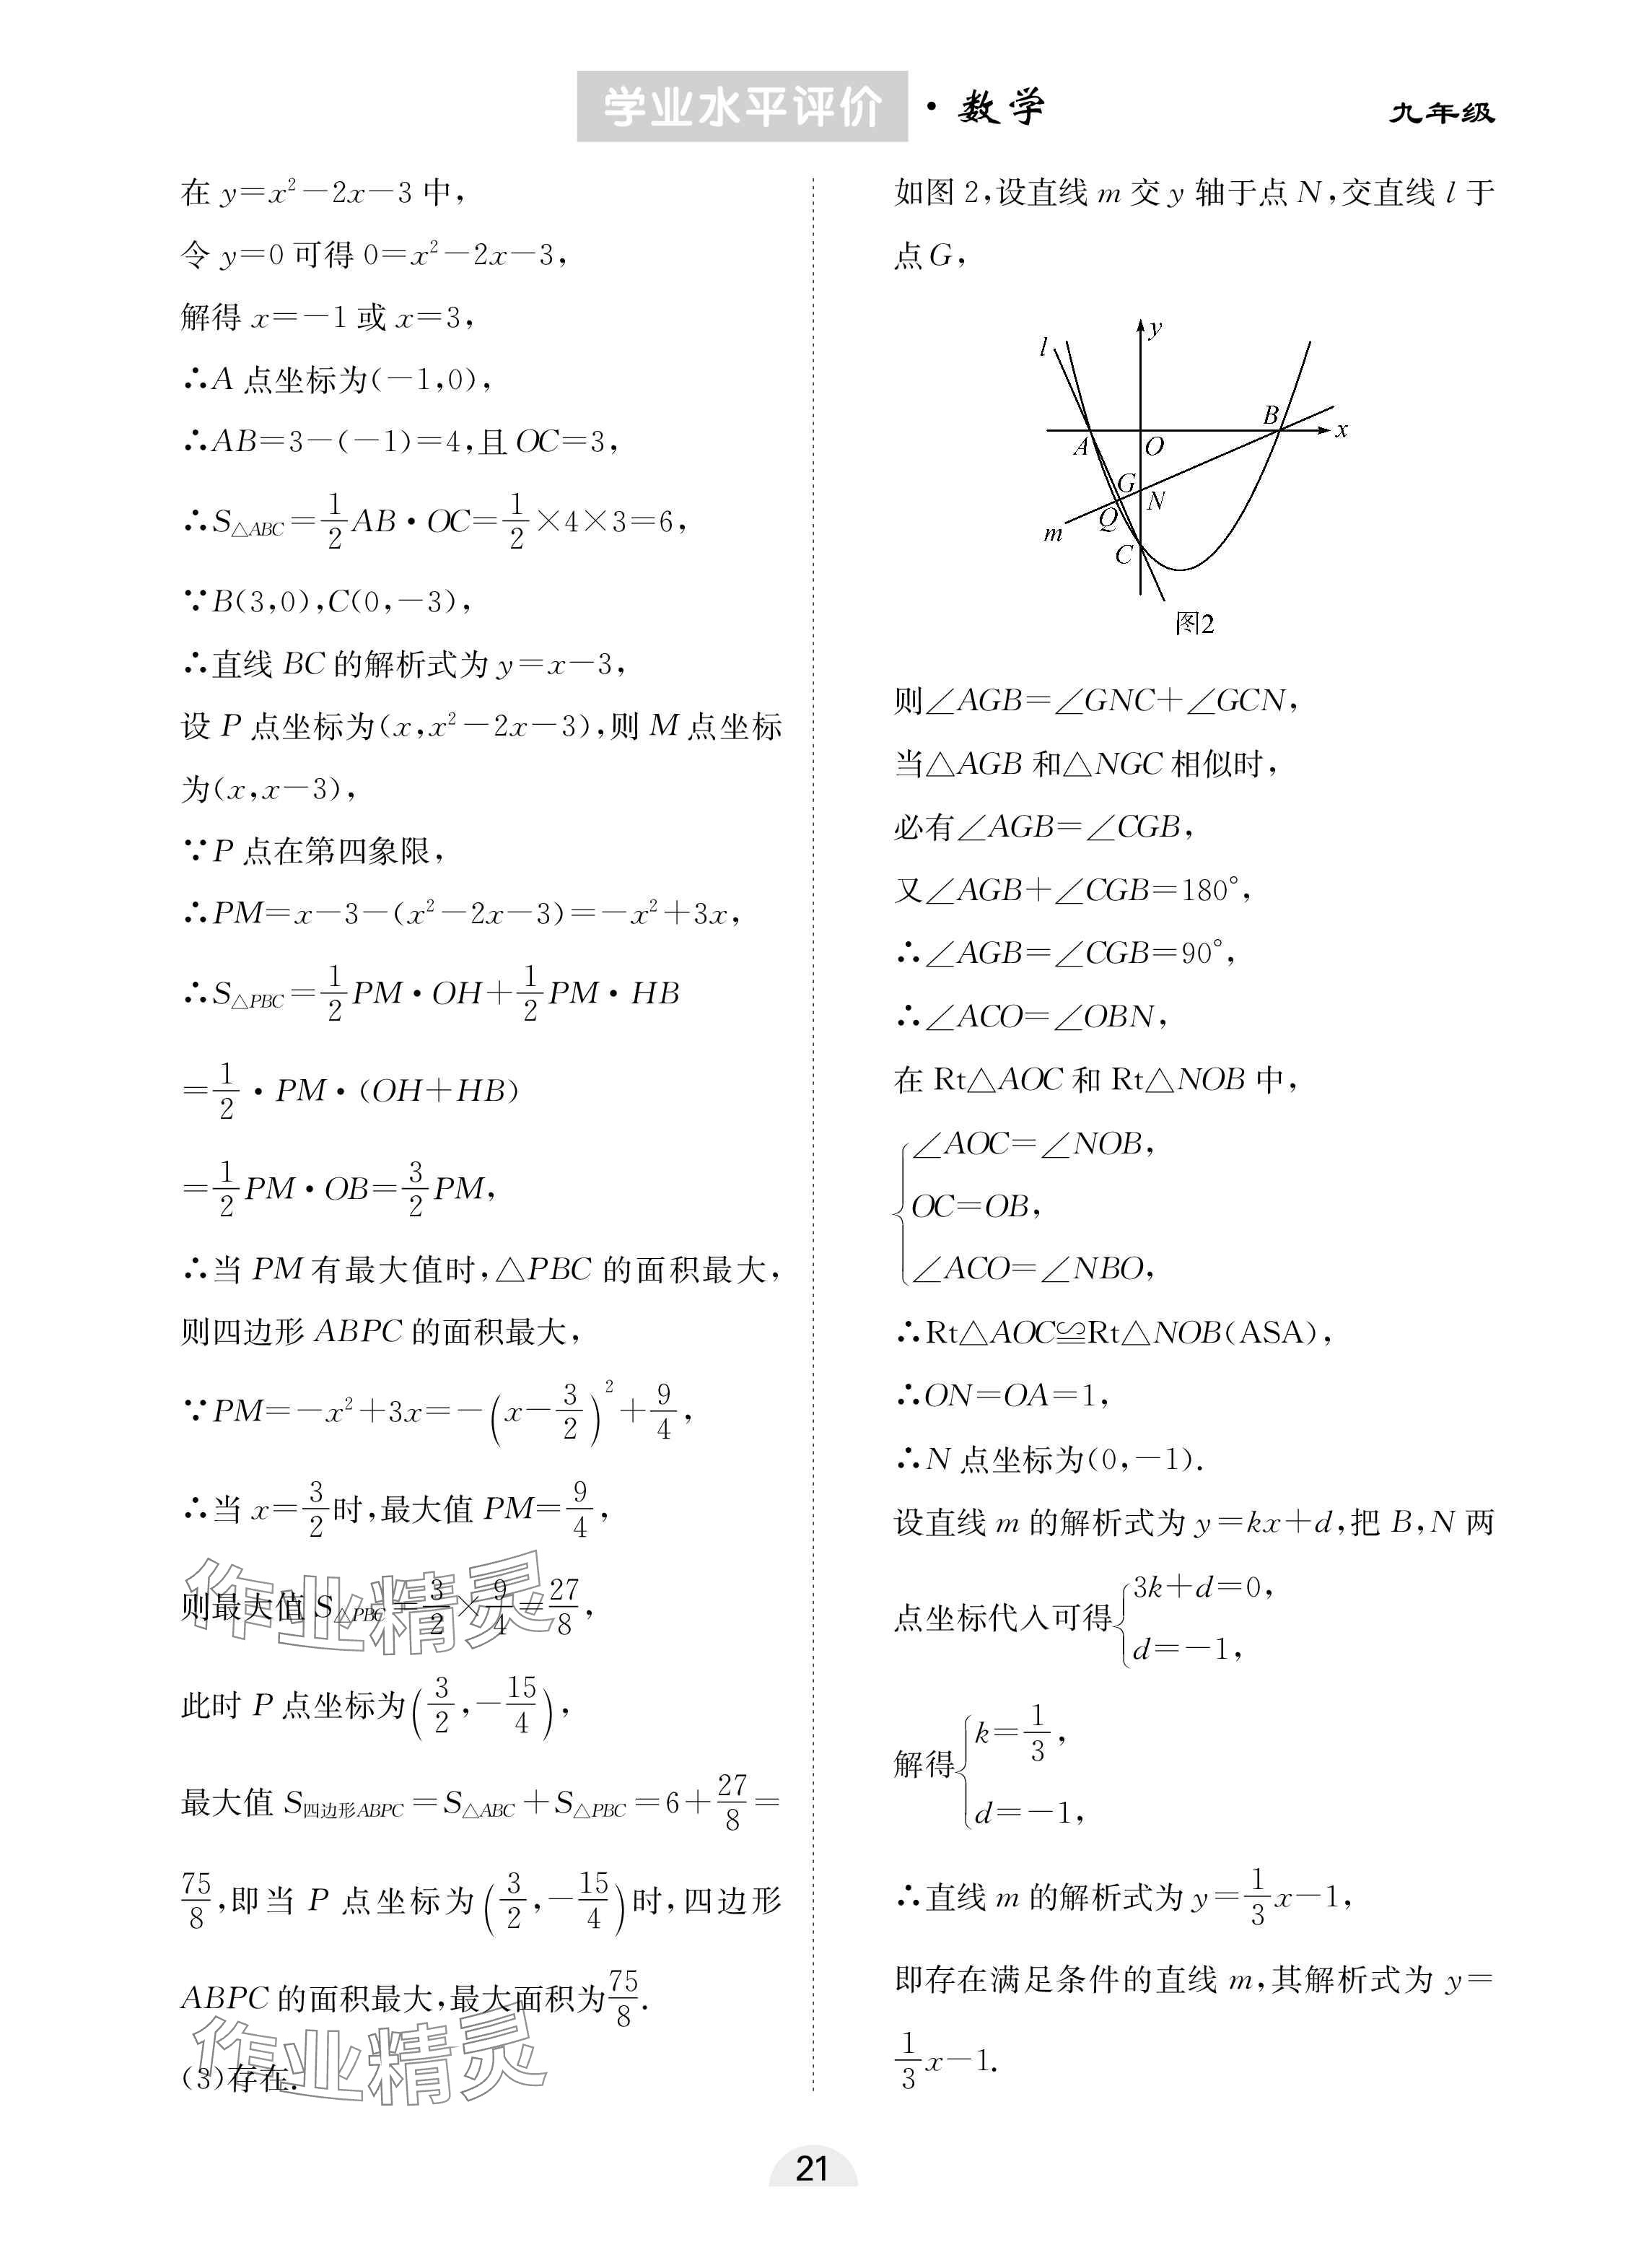 学业水平评价·数学
九年级
在 y=x²-2x-3 中,
令 y=0 可得 0=x²-2x-3,
解得 x=-1 或 x=3,
∴A 点坐标为(-1,0),
∴AB=3-(-1)=4,且 OC=3,
∴S△ABC=1/2 AB·OC=1/2×4×3=6,
∵B(3,0),C(0,-3),
∴直线 BC 的解析式为 y=x-3,
设 P 点坐标为(x,x²-2x-3),则 M 点坐标
为(x,x-3),
∵P 点在第四象限,
∴PM=x-3-(x²-2x-3)=-x²+3x,
∴S△PBC=1/2 PM·OH+1/2 PM·HB
=1/2·PM·(OH+HB)
=1/2 PM·OB=3/2 PM,
∴当 PM 有最大值时,△PBC 的面积最大,
则四边形 ABPC 的面积最大,
∵PM=-x²+3x=-(x-3/2)²+9/4,
∴当 x=3/2 时,最大值 PM=9/4,
则最大值 S△PBC=3/2×9/4=27/8,
此时 P 点坐标为(3/2,-15/4),
最大值 S四边形ABPC=S△ABC+S△PBC=6+27/8=
75/8,即当 P 点坐标为(3/2,-15/4)时,四边形
ABPC 的面积最大,最大面积为75/8.
(3)存在.
作业精灵
作业精灵
如图 2,设直线 m 交 y 轴于点 N,交直线 l 于
点 G,
l
y
B
x
A
O
G
N
Q
m
C
图2
则∠AGB=∠GNC+∠GCN,
当△AGB 和△NGC 相似时,
必有∠AGB=∠CGB,
又∠AGB+∠CGB=180°,
∴∠AGB=∠CGB=90°,
∴∠ACO=∠OBN,
在 Rt△AOC 和 Rt△NOB 中,
∠AOC=∠NOB,
OC=OB,
∠ACO=∠NBO,
∴Rt△AOC≌Rt△NOB(ASA),
∴ON=OA=1,
∴N 点坐标为(0,-1).
设直线 m 的解析式为 y=kx+d,把 B,N 两
点坐标代入可得{3k+d=0,
d=-1,
解得{k=1/3,
d=-1,
∴直线 m 的解析式为 y=1/3 x-1,
即存在满足条件的直线 m,其解析式为 y=
1/3 x-1.
21